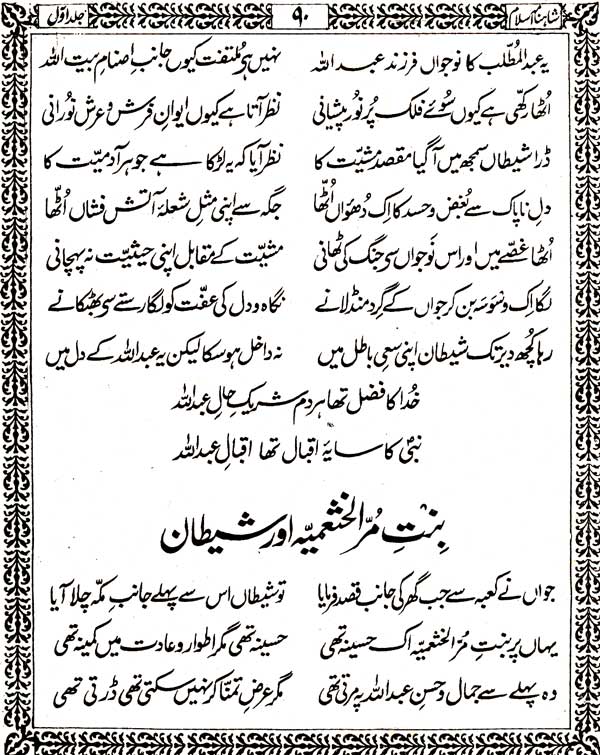 شاہنامہ اسلام ۹۰ جلد اوّل
یہ عبدالمُطّلب کا نوجواں فرزند عبد اللہ نہیں ہو ملتفت کیوں جانبِ اصنامِ بیت اللہ
اُٹھا رکھّی ہے کیوں سُوئے فلک پُر نُور پیشانی نظر آتا ہے کیوں ایوانِ فرش و عرش نُورانی
ذرا شیطاں سمجھ میں آگیا مقصد مشیّت کا نظر آیا کہ یہ لڑکا ہے جوہر آدمیّت کا
دلِ ناپاک سے بُغض و حسد کا اِک دُھواں اُٹھّا جگہ سے اپنی مثلِ شعلۂ آتش فشاں اُٹھّا
اُٹھا غصّے میں اور اس نوجواں سی جنگ کی ٹھانی مشیّت کے مقابل اپنی حیثیّت نہ پہچانی
لگا اِک وسوسہ بن کر جواں کے گِرد منڈلانے نگاہ و دل کی عفّت کو لگا رستے سی بھٹکانے
رہا کُچھ دیر تک شیطان اپنی سعیِ باطل میں نہ داخل ہو سکا لیکن یہ عبداللہ کے دل میں
خُدا کا فضل تھا ہر دم شریکِ حالِ عبداللہ
نبیؐ کا سایۂ اقبال تھا اقبالِ عبداللہ
بنتِ مُرّ الخثعمیّہ اور شیطان
جواں نے کعبہ سے جب گھر کی جانب قصد فرمایا تو شیطاں اس سے پہلے جانبِ مکّہ چلا آیا
یہاں پر بنتِ مُرّ الخثعمیّہ اک حسینہ تھی حسینہ تھی مگر اطوار و عادت میں کمینہ تھی
وہ پہلے سے جمال و حسنِ عبداللہ پہ مرتی تھی مگر عرضِ تمنّا کر نہیں سکتی تھی ڈرتی تھی